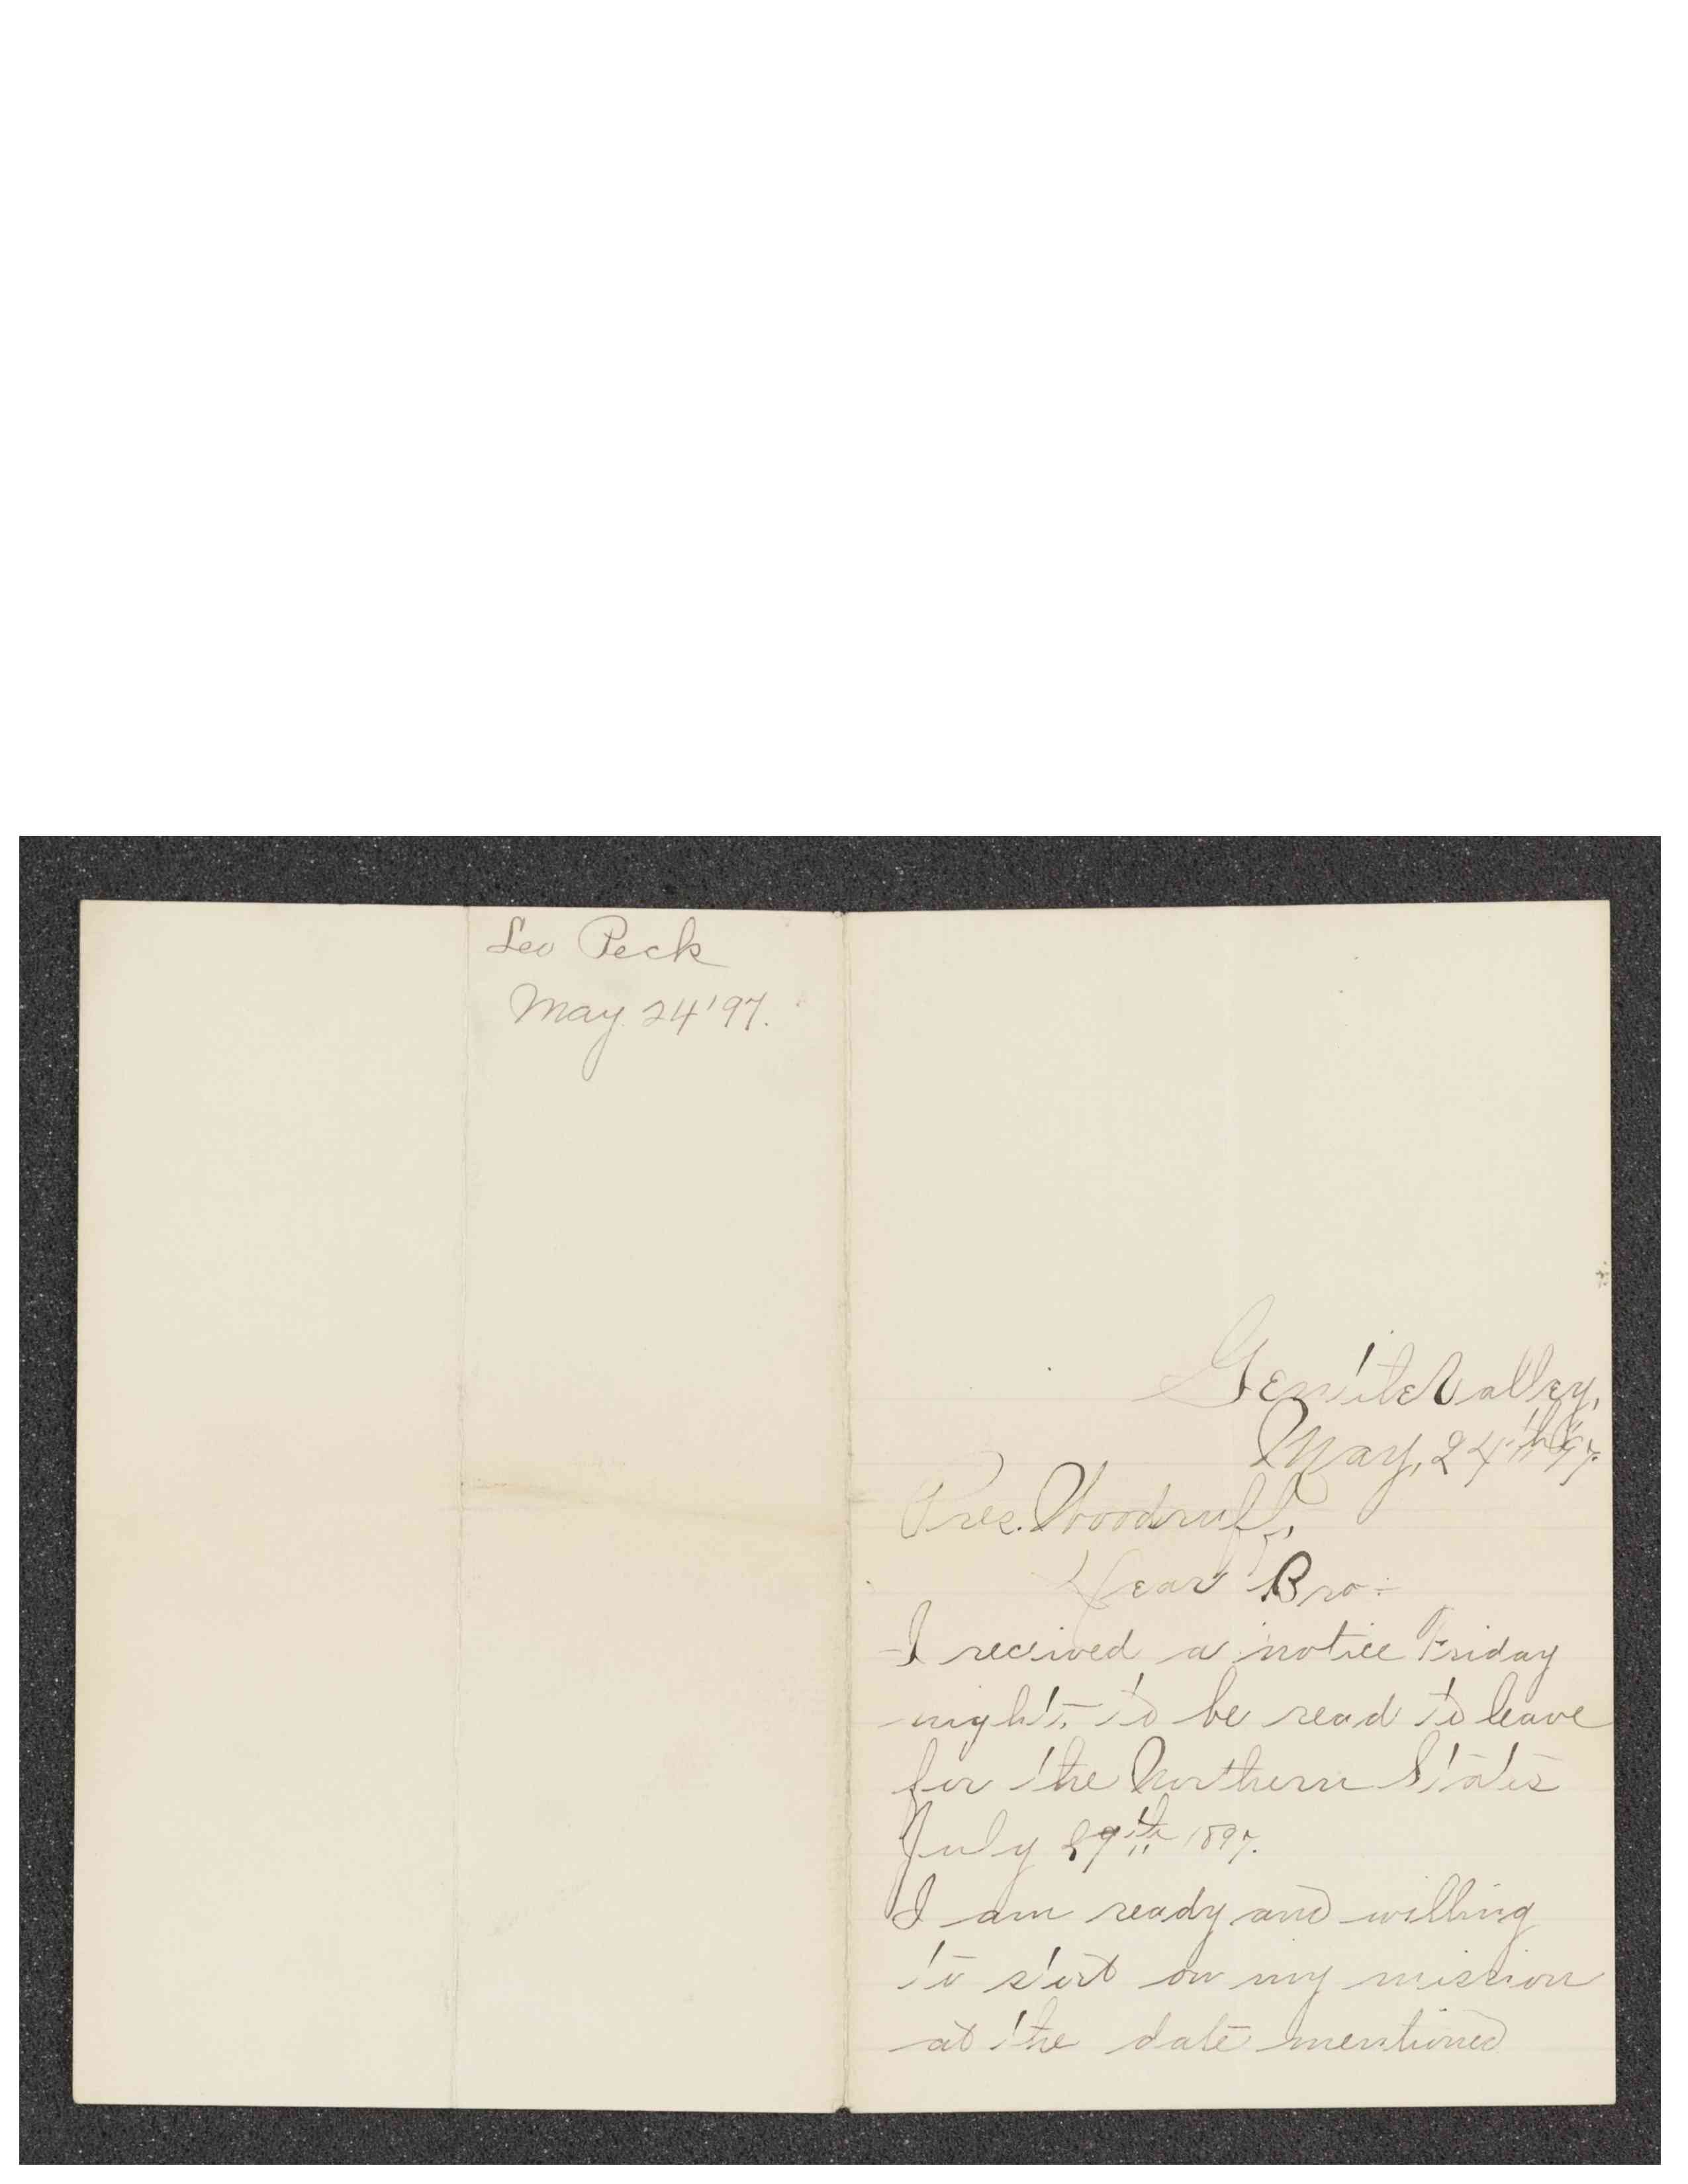 Leo Peck
May 24'97.
Gentile Valley,
May, 24th 97.
Pres. Woodruff,
Dear Bro:
I received a notice Friday
night, to be read to leave
for the Northern States
July 29th 1897.
I am ready and willing
to start on my mission
at the date mentioned